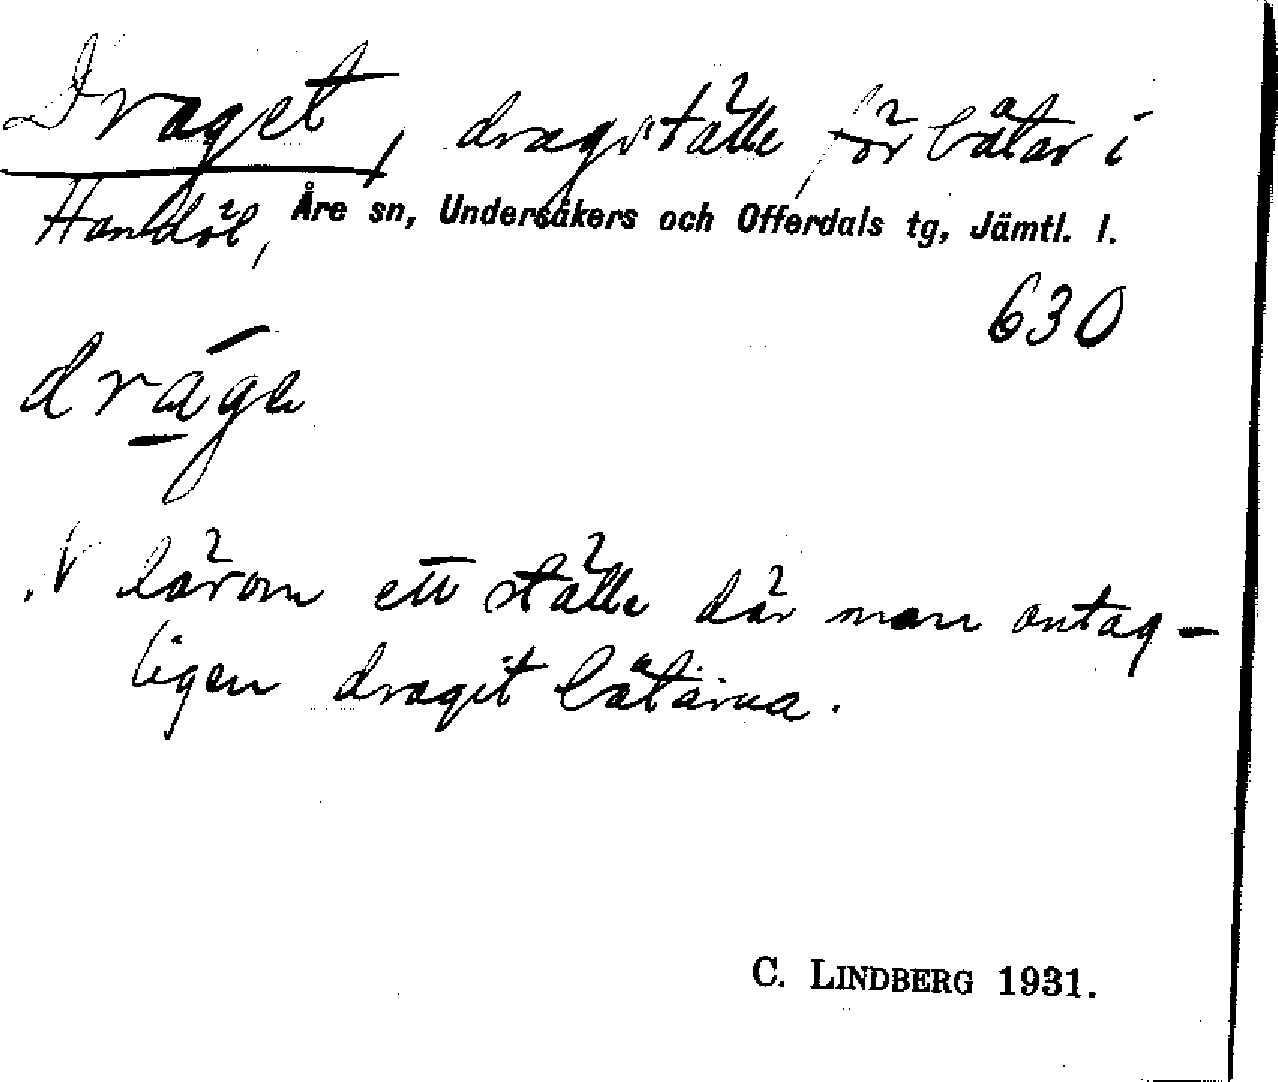 Draget, dragställe för båtar i
Handöl, Åre sn, Undersåkers och Offerdals tg, Jämtl. l.
630
V bärom ett ställe där man antag-
ligen dragit båtarna.
C. LINDBERG 1931.